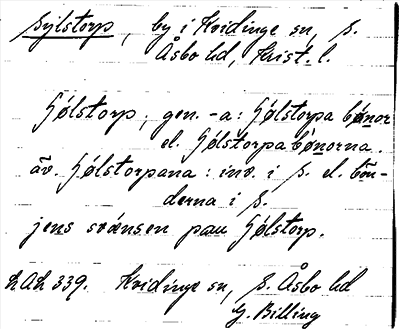 Sylstorp, by i Kvidinge sn, S.
Åsbo hd, Krist. l.
Sølstorp; gen. -a: Sølstorpa bønor
el. Sølstorpabønorna.
äv. Sølstorpana: inv. i S. el. bön-
derna i S.
jens svænsen pau Sølstorp.
LAL 339. Kvidinge sn, S. Åsbo hd
G. Billing